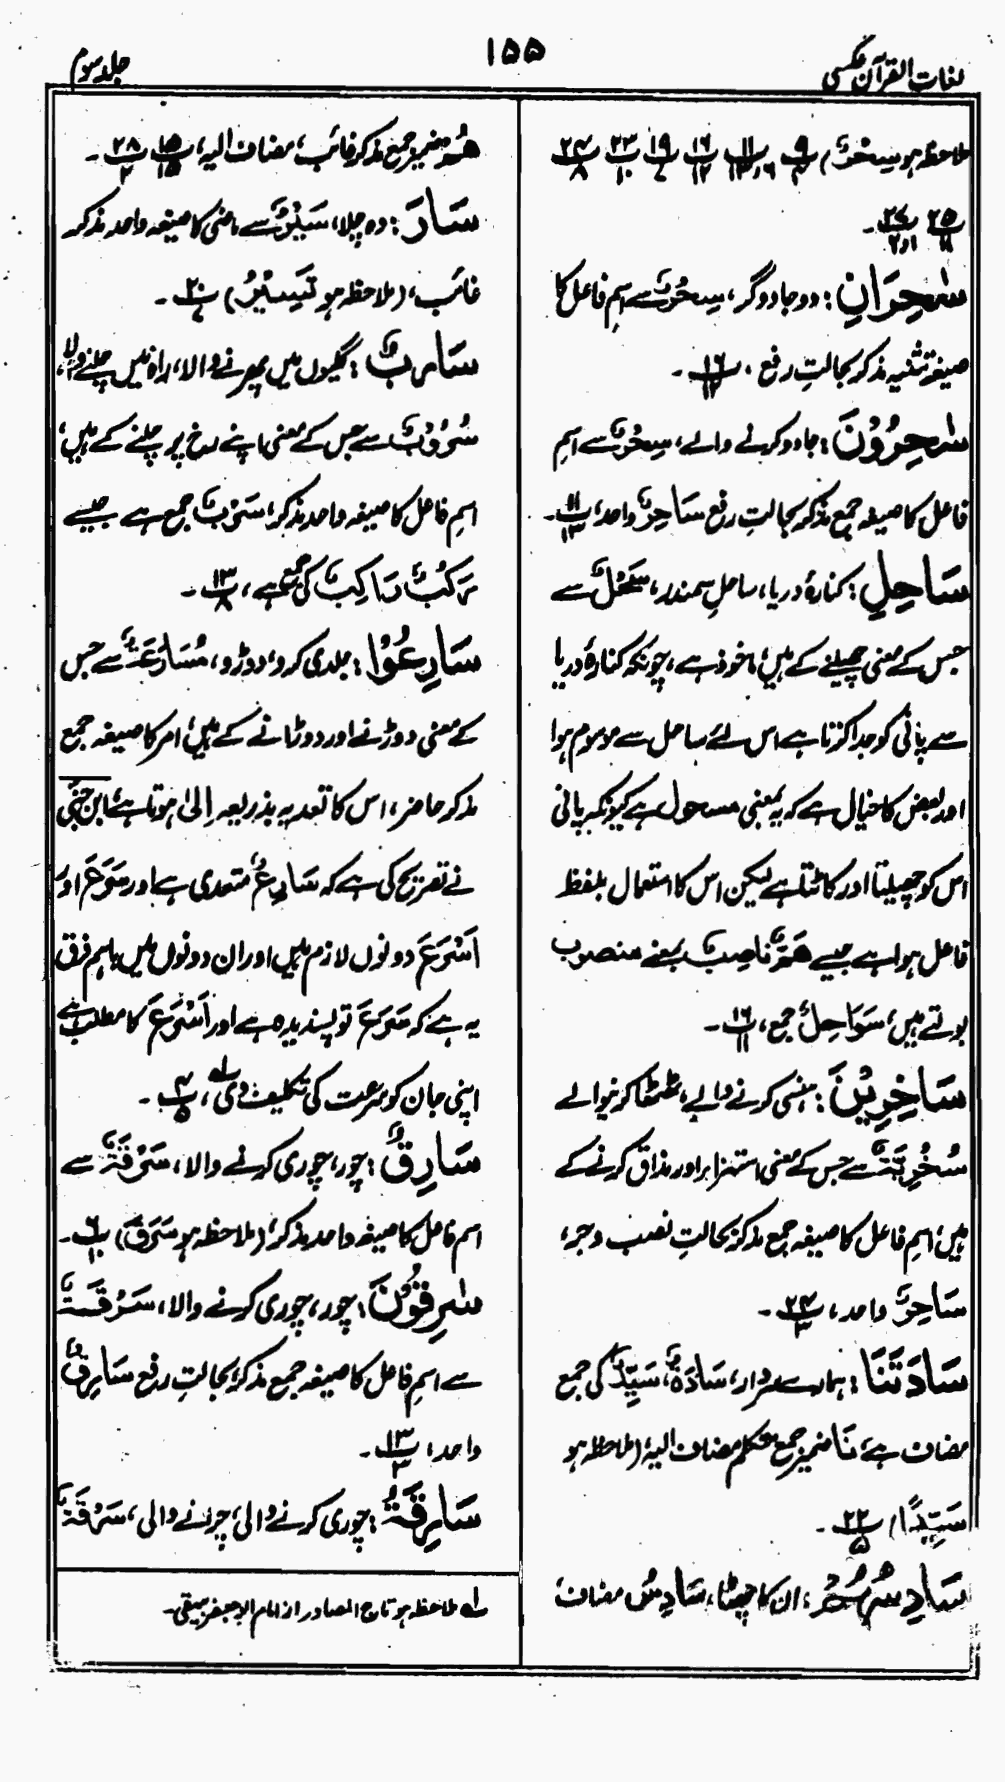 لغات القرآن عکسی
۱۵۵
جلد سوم
ملاحظہ ہو سِحْرٌ)
سٰحِرَانِ: دو جادوگر، سِحْرٌ سے اسم فاعل کا
صیغہ تثنیہ مذکر بحالتِ رفع،
سٰحِرُوْنَ: جادو کرنے والے، سِحْرٌ سے اسم
فاعل کا صیغہ جمع مذکر بحالتِ رفع سَاحِرٌ واحد،
سَاحِلِ: کنارۂ دریا، ساحلِ سمندر، سَحْلٌ سے
جس کے معنی چھیلنے کے ہیں، ماخوذ ہے، چونکہ کنارۂ دریا
سے پانی کو جدا کرتا ہے اس لئے ساحل سے موسوم ہوا
اور بعض کا خیال ہے کہ یہ بمعنی مسحول ہے کیونکہ پانی
اس کو چھیلتا اور کاٹتا ہے لیکن اس کا استعمال بلفظ
فاعل ہوا ہے جیسے هَمٌّ نَاصِبٌ بمعنے منصوب
بولتے ہیں، سَوَاحِلُ جمع، ۱۶/۱۱۔
سَاخِرِيْنَ: ہنسی کرنے والے، ٹھٹھا کرنیوالے
سُخْرِيَّةٌ سے جس کے معنی استہزاء اور مذاق کرنے کے
ہیں، اسمِ فاعل کا صیغہ جمع مذکر بحالتِ نصب و جر،
سَاخِرٌ واحد، ۲۴/۳۔
سَادَتَنَا: ہمارے سردار، سَادَةٌ، سَيِّدٌ کی جمع
مضاف ہے، نَا ضمیر جمع متکلم مضاف الیہ، (ملاحظہ ہو
سَيِّدًا) ۲۲/۵۔
سَادِسُهُمْ: ان کا چھٹا، سَادِسُ مضاف،
هُمْ ضمیر جمع مذکر غائب، مضاف الیہ، ۱۵/۱۵ ۲۸/۲۔
سَارَ: وہ چلا، سَيْرٌ سے ماضی کا صیغہ واحد مذکر
غائب، (ملاحظہ ہو تَسِيْرُ) ۲۰/۷۔
سَارِبٌ: گلیوں میں پھرنے والا، راہ میں چلنے والا،
سُرُوْبٌ سے جس کے معنی اپنے رخ پر چلنے کے ہیں،
اسمِ فاعل کا صیغہ واحد مذکر، سَرْبٌ جمع ہے جیسے
رَكْبٌ رَاكِبٌ کی جمع ہے، ۱۳/۸۔
سَارِعُوْا: جلدی کرو، دوڑو، مُسَارَعَةٌ سے جس
کے معنی دوڑنے اور دوڑانے کے ہیں، امر کا صیغہ جمع
مذکر حاضر، اس کا تعدیہ بذریعہ اِلیٰ ہوتا ہے، ابن جنّی
نے تصریح کی ہے کہ سَارِعُ متعدی ہے اور سَرُعَ اور
اَسْرَعَ دونوں لازم ہیں اور ان دونوں میں باہم فرق
یہ ہے کہ سَرُعَ تو پسندیدہ ہے اور اَسْرَعَ کا مطلب ہے
اپنی جان کو سرعت کی تکلیف دی، لہ ۴/۵۔
سَارِقٌ: چور، چوری کرنے والا، سَرْقَةٌ سے
اسم فاعل کا صیغہ واحد مذکر، (ملاحظہ ہو سَرَقَ) ۶/۱۰۔
سٰرِقُوْنَ: چور، چوری کرنے والا، سَرْقَةٌ
سے اسمِ فاعل کا صیغہ جمع مذکر، بحالتِ رفع سَارِقٌ
واحد، ۱۳/۳۔
سَارِقَةُ: چوری کرنے والی، چرانے والی، سَرْقَةٌ
لہ ملاحظہ ہو تاج المصادر از امام ابو جعفر بیہقی۔